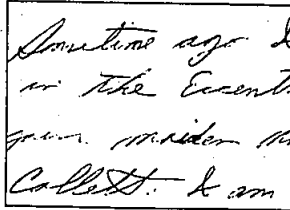 Sometime ago I
in the Event
your maiden
Collett. I am